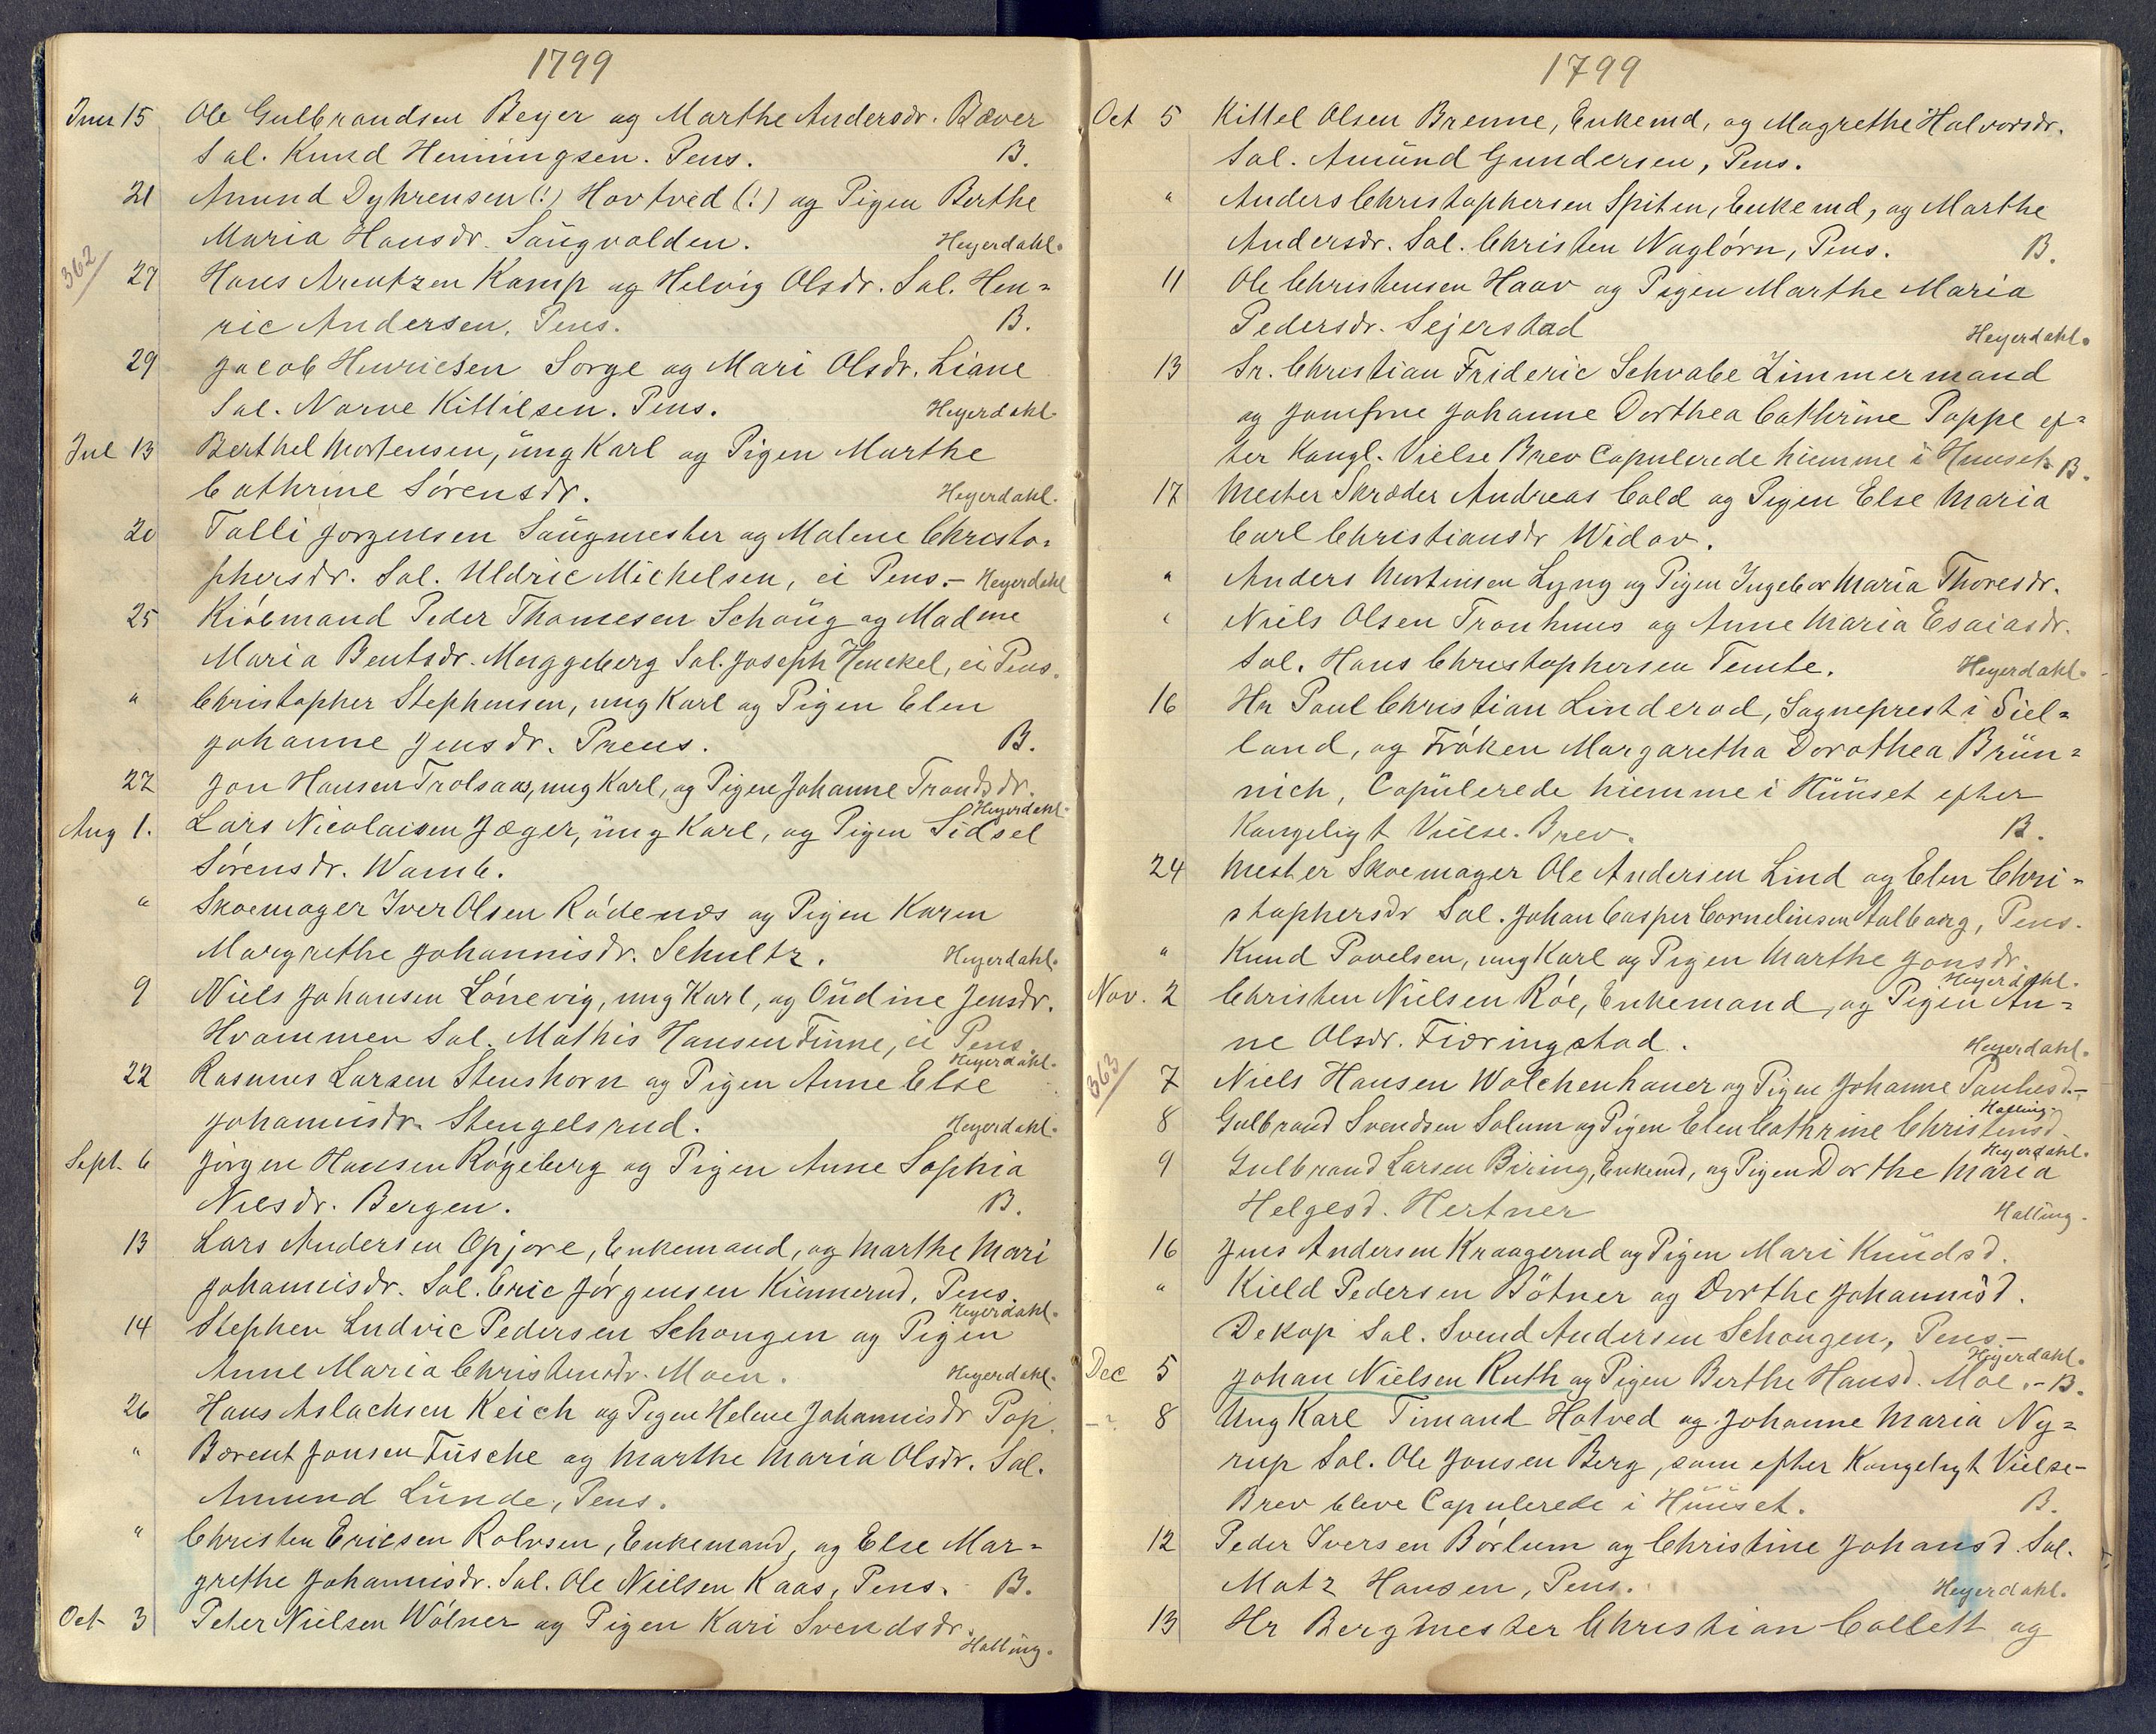 1799
Juni 15 Ole Gulbrandsen Beyer og Marthe Andersdr. Bæver
Sal. Knud Henningsen. Pens. B.
21 Amund Dyhrensen (!) Hovtved (!) og Pigen Berthe
Maria Hansdr. Saugvolden. Heyerdahl.
362/
27 Hans Arentzen Kamp og Helvig Olsdr. Sal. Hen=
ric Andersen. Pens. B.
29 Jacob Henricsen Sorge og Mari Olsdr. Liane
Sal. Narve Kittilsen. Pens. Heyerdahl.
Jul 13 Berthel Mortensen, ung Karl og Pigen Marthe
Cathrine Sörensdr. Heyerdahl.
20 Talli Jorgensen Saugmester og Malene Christo=
phersdr. Sal. Uldric Michelsen, ei Pens.– Heyerdahl
25 Kiöbmand Peder Thomesen Schoug og Madme
Maria Bentsdr. Muggeberg Sal. Joseph Henckel, ei Pens.
" Christopher Stephensen, ung Karl og Pigen Elen
Johanne Jensdr. Preus. B.
27 Jon Hansen Trolsaas, ung Karl, og Pigen Johanne Trondsdr.
Heyerdahl.
Aug 1. Lars Nicolaisen Jæger, ung Karl, og Pigen Sidsel
Sörensdr. Wamb.
" Skoemager Iver Olsen Rödenæs og Pigen Karen
Margrethe Johannisdr. Schultz. Heyerdahl.
9 Niels Johansen Lönevig, ung Karl, og Oudine Jensdr.
Hvammen Sal. Mathis Hansen Finne, ei Pens
Heyerdahl.
22 Rasmus Larsen Stenshorn og Pigen Anne Else
Johannisdr. Stengelsrud. Heyerdahl.
Sept. 6 Jörgen Hansen Rögeberg og Pigen Anne Sophia
Nilsdr. Bergen. B.
13 Lars Andersen Opjore, Enkemand, og Marthe Mari
Johannisdr. Sal. Eric Jörgensen Kinnerud, Pens.
Heyerdahl.
14 Stephen Ludvic Pedersen Schougen og Pigen
Anne Maria Christensdr. Moen. Heyerdahl.
26 Hans Aslachsen Keich og Pigen Helene Johannisdr Pop.
" Bærent Jonsen Tusche og Marthe Maria Olsdr. Sal.
Amund Lunde, Pens.
" Christen Ericsen Rolvsen, Enkemand, og Else Mar=
grethe Johannisdr. Sal. Ole Nielsen Kaas, Pens. B.
Oct 3 Peter Nielsen Wölner og Pigen Kari Svendsdr.
Halling.
1799
Oct 5 Kittel Olsen Brenne, Enkemd, og Magrethe Halvorsdr.
Sal. Amund Gundersen, Pens.
" Anders Christophersen Spiten, Enkemd, og Marthe
Andersdr. Sal. Christen Naglörn, Pens. B.
11 Ole Christensen Haav og Pigen Marthe Maria
Pedersdr. Sejerstad Heyerdahl.
13 Sr. Christian Frideric Schvabe Zimmermand
og Jomfrue Johanne Dorthea Cathrine Poppe ef=
ter Kongl. Vielse Brev Copulerede hiemme i Huuset. B.
17 Mester Skræder Andreas Cold og Pigen Else Maria
Carl Christiansdr Widov.
" Anders Mortinsen Lyng og Pigen Ingebor Maria Thoresdr.
" Niels Olsen Tronhuus og Anne Maria Esaiasdr.
Sal. Hans Christophersen Temte. Heyerdahl.
16 Hr Poul Christian Linderod, Sogneprest i Siel=
land, og Fröken Margaretha Dorothea Brün=
nich, Copulerede hiemme i Huuset efter
Kongeligt Vielse-Brev. B.
24 Mester Skoemager Ole Andersen Lind og Elen Chri=
stophersdr Sal. Johan Casper Corneliusen Aalborg, Pens.
" Knud Povelsen, ung Karl og Pigen Marthe Jonsdr.
Heyerdahl.
Nov. 2 Christen Nielsen Röe, Enkemand, og Pigen An=
ne Olsdr. Fiæringstad. Heyerdahl.
363/
7 Niels Hansen Wolchenhauer og Pigen Johanne Paulusd.–
Halling.
8 Gulbrand Svendsen Solum og Pigen Elen Cathrine Christensd
Heyerdahl.
9 Gulbrand Larsen Biring, Enkemd, og Pigen Dorthe Maria
Helgesd. Hertner Halling.
16 Jens Andersen Kraagerud og Pigen Mari Knudsd.
" Kield Pedersen Bötner og Dorthe Johannisd.
Dekop Sal. Svend Andersen Schougen, Pens–
Heyerdahl.
Dec 5 Johan Nielsen Ruth og Pigen Berthe Hansd. Moe.– B.
–"– 8 Ung Karl Timand Hotved og Johanne Maria Ny=
rup Sal. Ole Jonsen Berg, som efter Kongeligt Vielse-
Brev bleve Copulerede i Huuset. B.
12 Peder Iversen Börlum og Christine Johansd. Sal.
Matz Hansen, Pens. Heyerdahl.
13 Hr Bergmester Christian Collett og